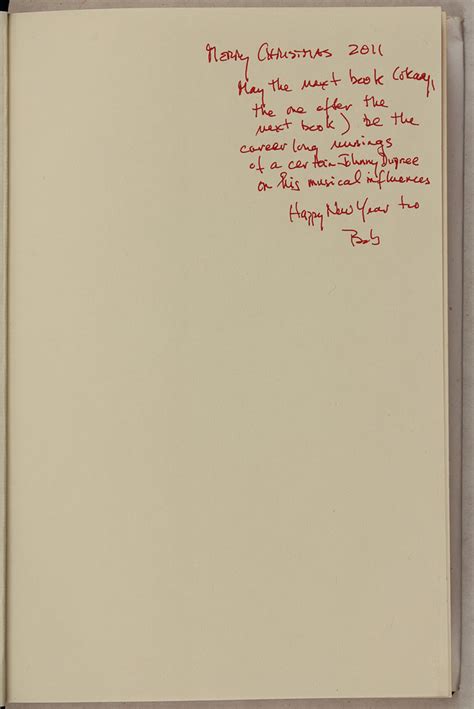 Merry Christmas 2011
May the next book (okay,
the one after the
next book) be the
career long musings
of a certain Johnny Dugree
on his musical influences
Happy New Year too
Bob